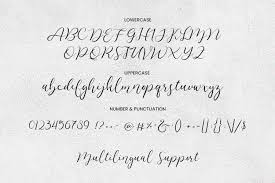 LOWERCASE
ABCDEFGHIJKLMN
OPQRSTUVWXYZ
UPPERCASE
abcdefghijklmnopqrstuvwxyz
NUMBER & PUNCTUATION
0123456789
Multilingual Support